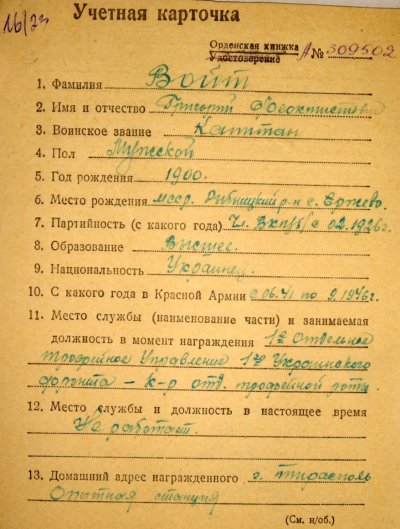 16/73
Учетная карточка
Орденская книжка
Удостоверение А № 309502
1. Фамилия Войт
2. Имя и отчество Григорий Феоктистович
3. Воинское звание Капитан
4. Пол Мужской
5. Год рождения 1900.
6. Место рождения мсср. Рыбницкий р-н с. Ержово.
7. Партийность (с какого года) Чл. Вкп/б/ с 02.1926г.
8. Образование Высшее.
9. Национальность Украинец.
10. С какого года в Красной Армии с 06.41 по 9.1946г.
11. Место службы (наименование части) и занимаемая
должность в момент награждения 1е Отдельное
трофейное Управление 1го Украинского
фронта – к-р отд. трофейной роты
12. Место службы и должность в настоящее время
Не работает.
13. Домашний адрес награжденного г. Тирасполь
Опытная станция
(См. н/об.)